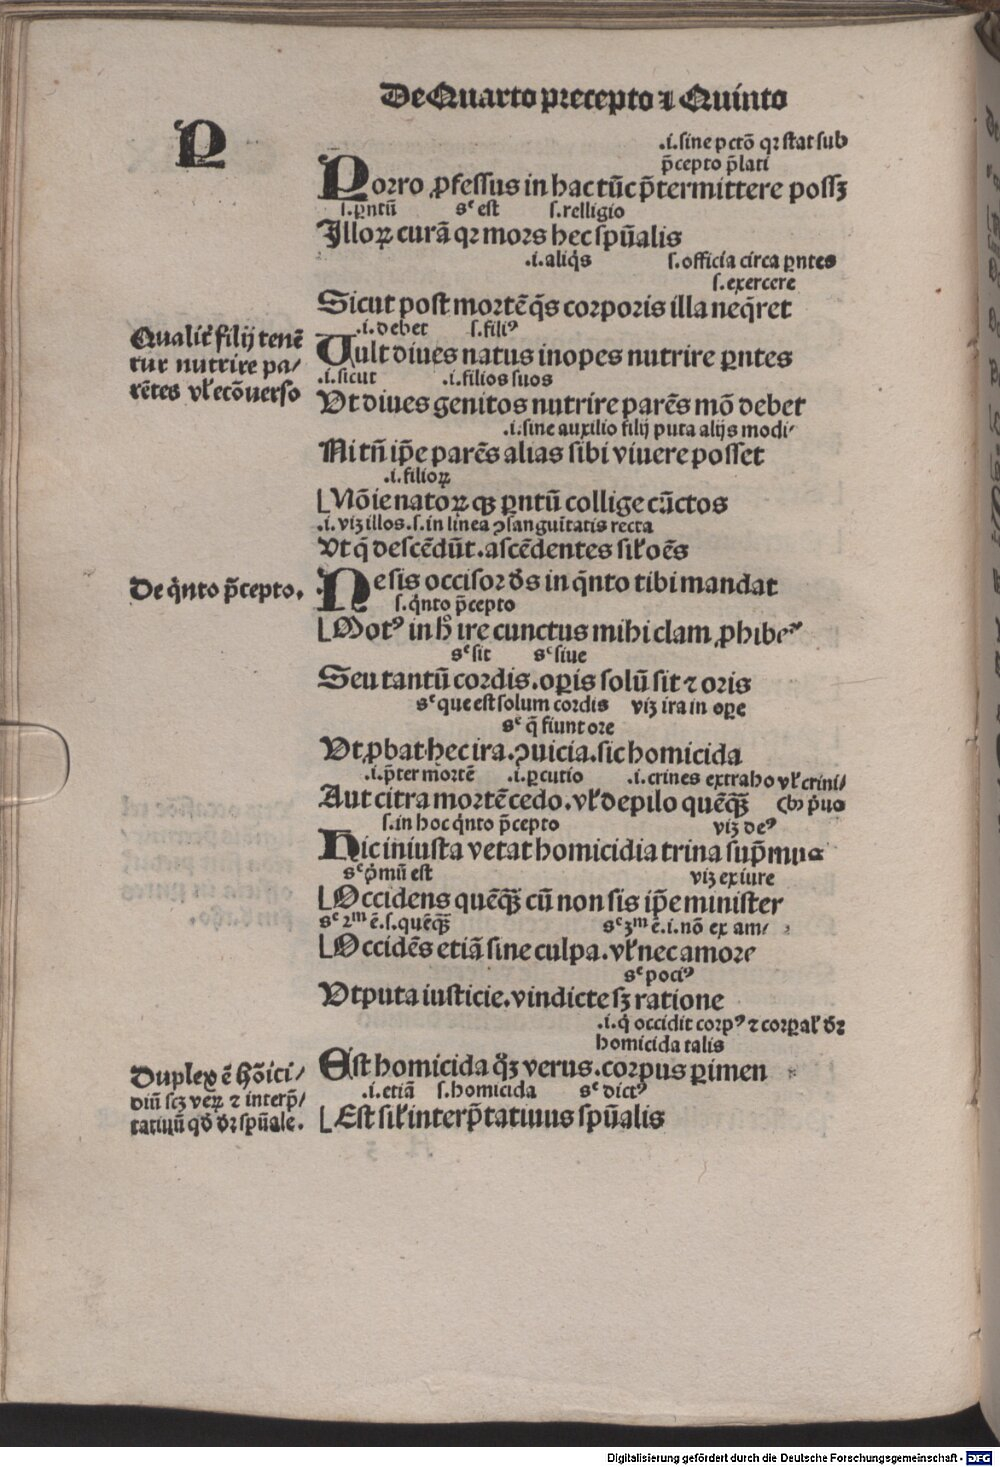 De Quarto precepto ⁊ Quinto
P
.i. sine pctō qꝛ stat sub
p̄cepto p̄lati
Porro ꝓfessus in hac tūc p̄termittere possꝫ
s. pntū sᶜ est s. relligio
Illoꝝ curā qꝛ mors hec spūalis
.i. aliq̇s s. officia circa pntes
s. exercere
Sicut post mortē q̇s corporis illa neq̇ret
Qualiť filij tenē
tur nutrire pa/
rētes vł ecōuerso
.i. debet s. filiꝰ
Vult diues natus inopes nutrire pntes
.i. sicut .i. filios suos
Vt diues genitos nutrire parēs mō debet
.i. sine auxilio filij puta alijs modi/
Ni tn̄ ip̄e parēs alias sibi viuere posset
.i. filioꝝ
Nōie natoꝝ qꝫ pntū collige cūctos
.i. viꝫ illos. s. in linea ꝯsanguītatis recta
Vt q̄ descēdūt. ascēdentes sił oēs
De q̇nto p̄cepto.
Ne sis occisor d̄s in q̇nto tibi mandat
s. q̇nto p̄cepto
Motꝰ in h̄ ire cunctus mihi clam ꝓhibeť
sᶜ sit sᶜ siue
Seu tantū cordis. oꝑis solū sit ⁊ oris
sᶜ que est solum cordis viꝫ ira in oꝑe
sᶜ q̄ fiunt ore
Vt ꝓbat hec ira. ꝯuicia. sic homicida
.i. p̄ter mortē .i. ꝑcutio .i. crines extraho vł crini/
Aut citra mortē cedo. vł depilo quēqꝫ (bꝰ p̄uo
s. in hoc q̇nto p̄cepto viꝫ deꝰ
Hic iniusta vetat homicidia trina sup̄mus
sᶜ ṗmū est viꝫ ex iure
Occidens quēqꝫ cū non sis ip̄e minister
sᶜ 2ᵐ ē. s. quēqꝫ sᶜ 3ᵐ ē. i. nō ex am/
Occidēs etiā sine culpa. vł nec amore
sᶜ pociꝰ
Vtputa iusticie. vindicte sꝫ ratione
.i. q̇ occidit corpꝰ ⁊ corꝑał d̄ꝛ
homicida talis
Duplex ē hōici/
diū scꝫ veꝝ ⁊ interp̄/
tatiuū qd̄ d̄ꝛ spūale.
Est homicida q̇dꝫ verus. corpus ꝑimen
.i. etiā s. homicida sᶜ dictꝰ
Est sił interp̄tatiuus spūalis
Digitalisierung gefördert durch die Deutsche Forschungsgemeinschaft - DFG